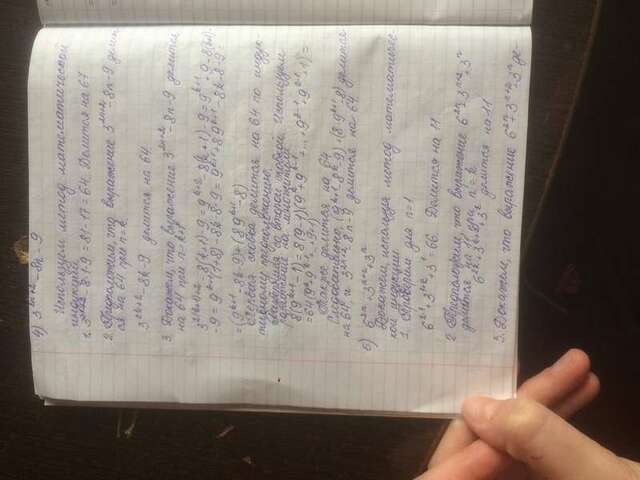 4) 3^{2n+2} - 8n - 9
Используем метод математической
индукции
1. 3^{2+2} - 8·1·9 = 81 - 17 = 64. Делится на 67
2. Предположим, что выражение 3^{2n+2} - 8n - 9 делит-
ся на 64 при n = k
3^{2k+2} - 8k - 9 делится на 64
3. Докажем, что выражение 3^{2n+2} - 8n - 9 делится
на 64 при n = k+1
3^{2(k+1)+2} - 8(k+1) - 9 = 9^{k+2} - 8(k+1) - 9 = 9^{k+1} · 9 - 8(k+1) -
- 9 = 9^{k+1}(1+8) - 8k - 8 - 9 = 9^{k+1} + 8·9^{k+1} - 8k - 8 - 9 =
= (9^{k+1} - 8k - 9) + (8·9^{k+1} - 8)
Первая скобка делится на 64 по индук-
тивному предположению.
со второй скобкой. Используем
на множители
8(9^{k+1} - 1) = 8(9-1)(9^k + 9^{k-1} + ... + 9^{2-1} + 9^{1-1} + 1) =
= 64(9^k + 9^{k-1} ... + 9 + 1)
Также делится на 64
Следовательно, (9^{k+1} - 8k - 9) + (8·9^{k+1} - 8) делится
на 64, и 3^{2n+2} 8n - 9 делится на 64
5) 6^{2n} + 3^{n+2} + 3^n
Докажем, используя метод математичес-
кой индукции
1. Проверим для n = 1
6^{2·1} + 3^{1+2} + 3^1 = 66. Делится на 11
2. Предположим, что выражение 6^{2n} + 3^{n+2} + 3^n
делится на 11 при n = k
6^{2k} + 3^{k+2} + 3^k делится на 11
3. Докажем, что выражение 6^{2n} + 3^{n+2} + 3^n де-